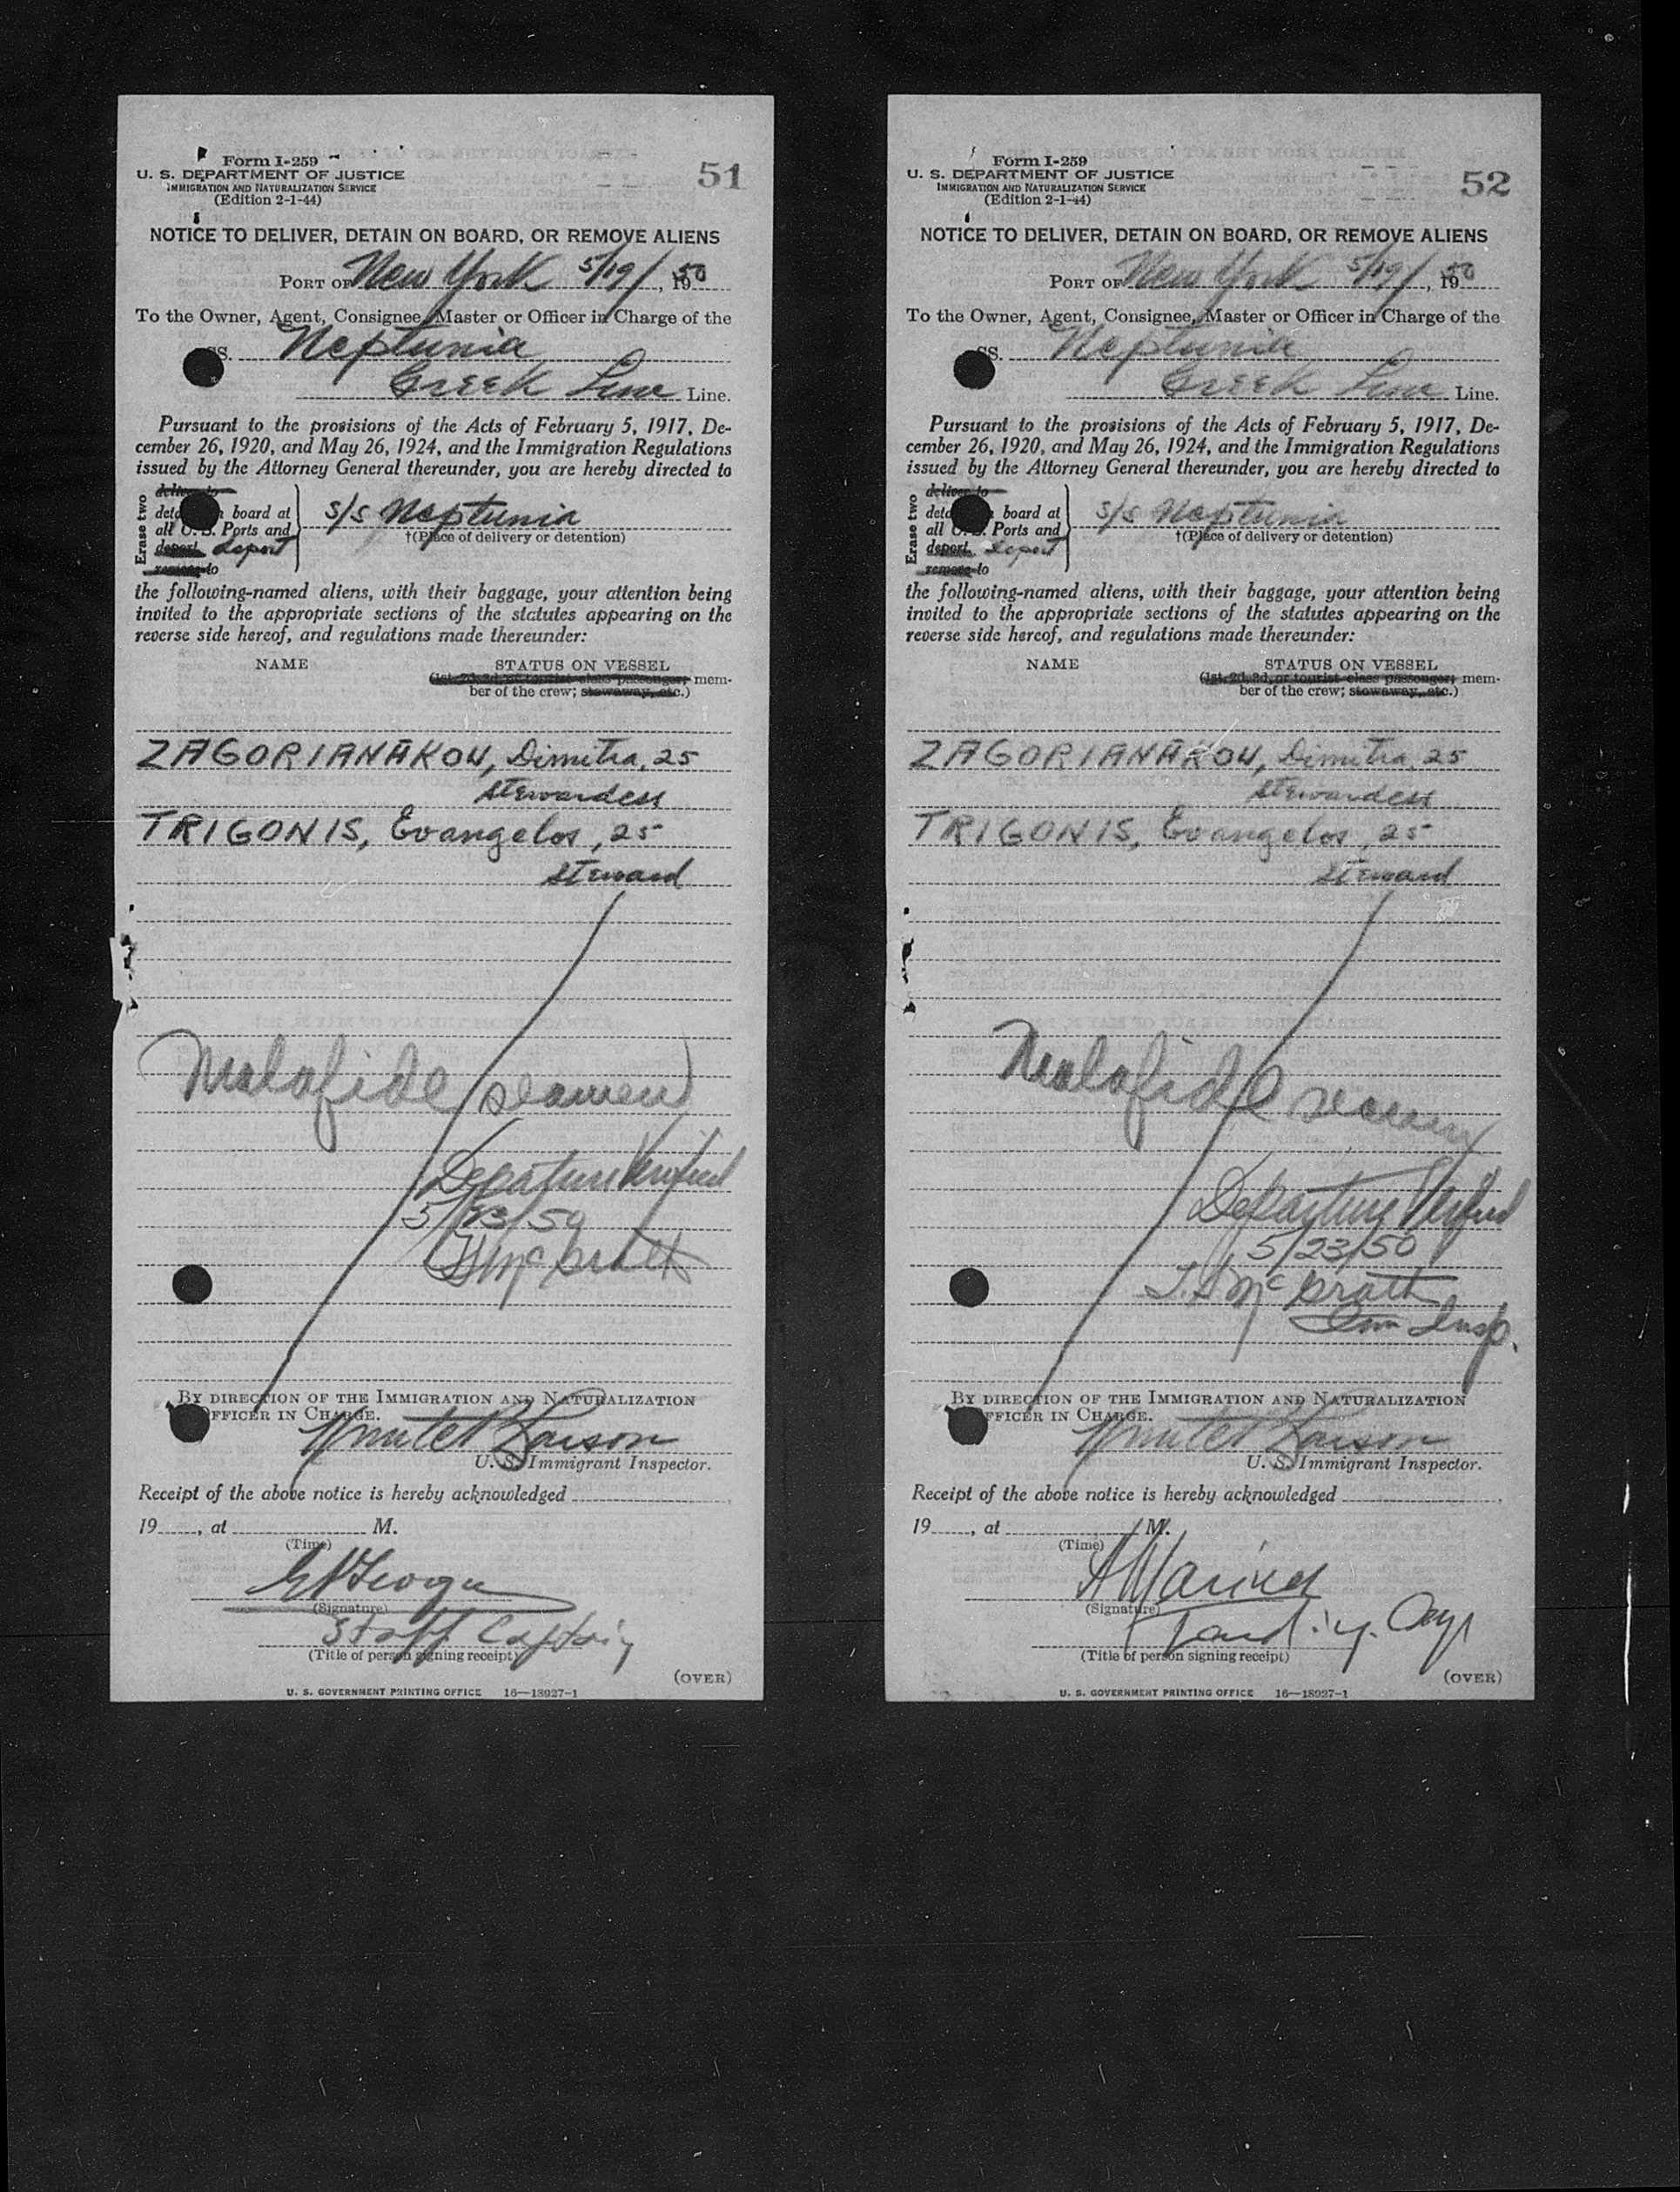 Form I-259
U. S. DEPARTMENT OF JUSTICE
IMMIGRATION AND NATURALIZATION SERVICE
(Edition 2-1-44)
51
NOTICE TO DELIVER, DETAIN ON BOARD, OR REMOVE ALIENS
PORT OF New York 5/19/, 1950
To the Owner, Agent, Consignee, Master or Officer in Charge of the
SS. Neptunia
Greek Line Line.
Pursuant to the provisions of the Acts of February 5, 1917, De-
cember 26, 1920, and May 26, 1924, and the Immigration Regulations
issued by the Attorney General thereunder, you are hereby directed to
Erase two
deliver to
board at
all U. S. Ports and
deport deport
remove to
S/S Neptunia
†(Place of delivery or detention)
the following-named aliens, with their baggage, your attention being
invited to the appropriate sections of the statutes appearing on the
reverse side hereof, and regulations made thereunder:
NAME STATUS ON VESSEL
(1st, 2d, 3d, or tourist class passenger; mem-
ber of the crew; stowaway, etc.)
ZAGORIANAKOU, Dimitra, 25
Stewardess
TRIGONIS, Evangelos, 25
Steward
(Malafide seamen)
Departure Verified
5/23/50
McGrath
BY DIRECTION OF THE IMMIGRATION AND NATURALIZATION
OFFICER IN CHARGE.
U. S. Immigrant Inspector.
Receipt of the above notice is hereby acknowledged
19 , at M.
(Time)
(Signature)
Staff Captain
(Title of person signing receipt)
(OVER)
U. S. GOVERNMENT PRINTING OFFICE 16—18927-1
Form I-259
U. S. DEPARTMENT OF JUSTICE
IMMIGRATION AND NATURALIZATION SERVICE
(Edition 2-1-44)
52
NOTICE TO DELIVER, DETAIN ON BOARD, OR REMOVE ALIENS
PORT OF New York 5/19/, 1950
To the Owner, Agent, Consignee, Master or Officer in Charge of the
SS. Neptunia
Greek Line Line.
Pursuant to the provisions of the Acts of February 5, 1917, De-
cember 26, 1920, and May 26, 1924, and the Immigration Regulations
issued by the Attorney General thereunder, you are hereby directed to
Erase two
deliver to
board at
all U. S. Ports and
deport deport
remove to
S/S Neptunia
†(Place of delivery or detention)
the following-named aliens, with their baggage, your attention being
invited to the appropriate sections of the statutes appearing on the
reverse side hereof, and regulations made thereunder:
NAME STATUS ON VESSEL
(1st, 2d, 3d, or tourist class passenger; mem-
ber of the crew; stowaway, etc.)
ZAGORIANAKOU, Dimitra, 25
Stewardess
TRIGONIS, Evangelos, 25
Steward
Malafide seamen
Departure Verified
5/23/50
McGrath
Imm Insp.
BY DIRECTION OF THE IMMIGRATION AND NATURALIZATION
OFFICER IN CHARGE.
U. S. Immigrant Inspector.
Receipt of the above notice is hereby acknowledged
19 , at M.
(Time)
(Signature)
(Title of person signing receipt)
(OVER)
U. S. GOVERNMENT PRINTING OFFICE 16—18927-1